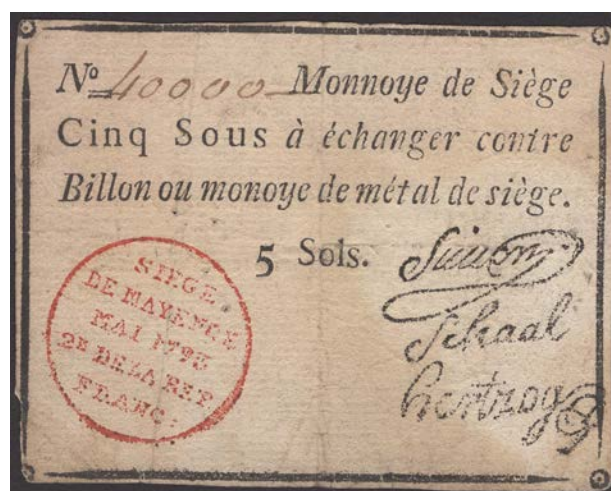 No. 40000 Monnoye de Siège
Cinq Sous à échanger contre
Billon ou monoye de métal de siège.
5 Sols.
SIEGE
DE MAYENCE
MAI 1793
2E DE LA REP
FRANC:
Simon
Schaal
hertzog